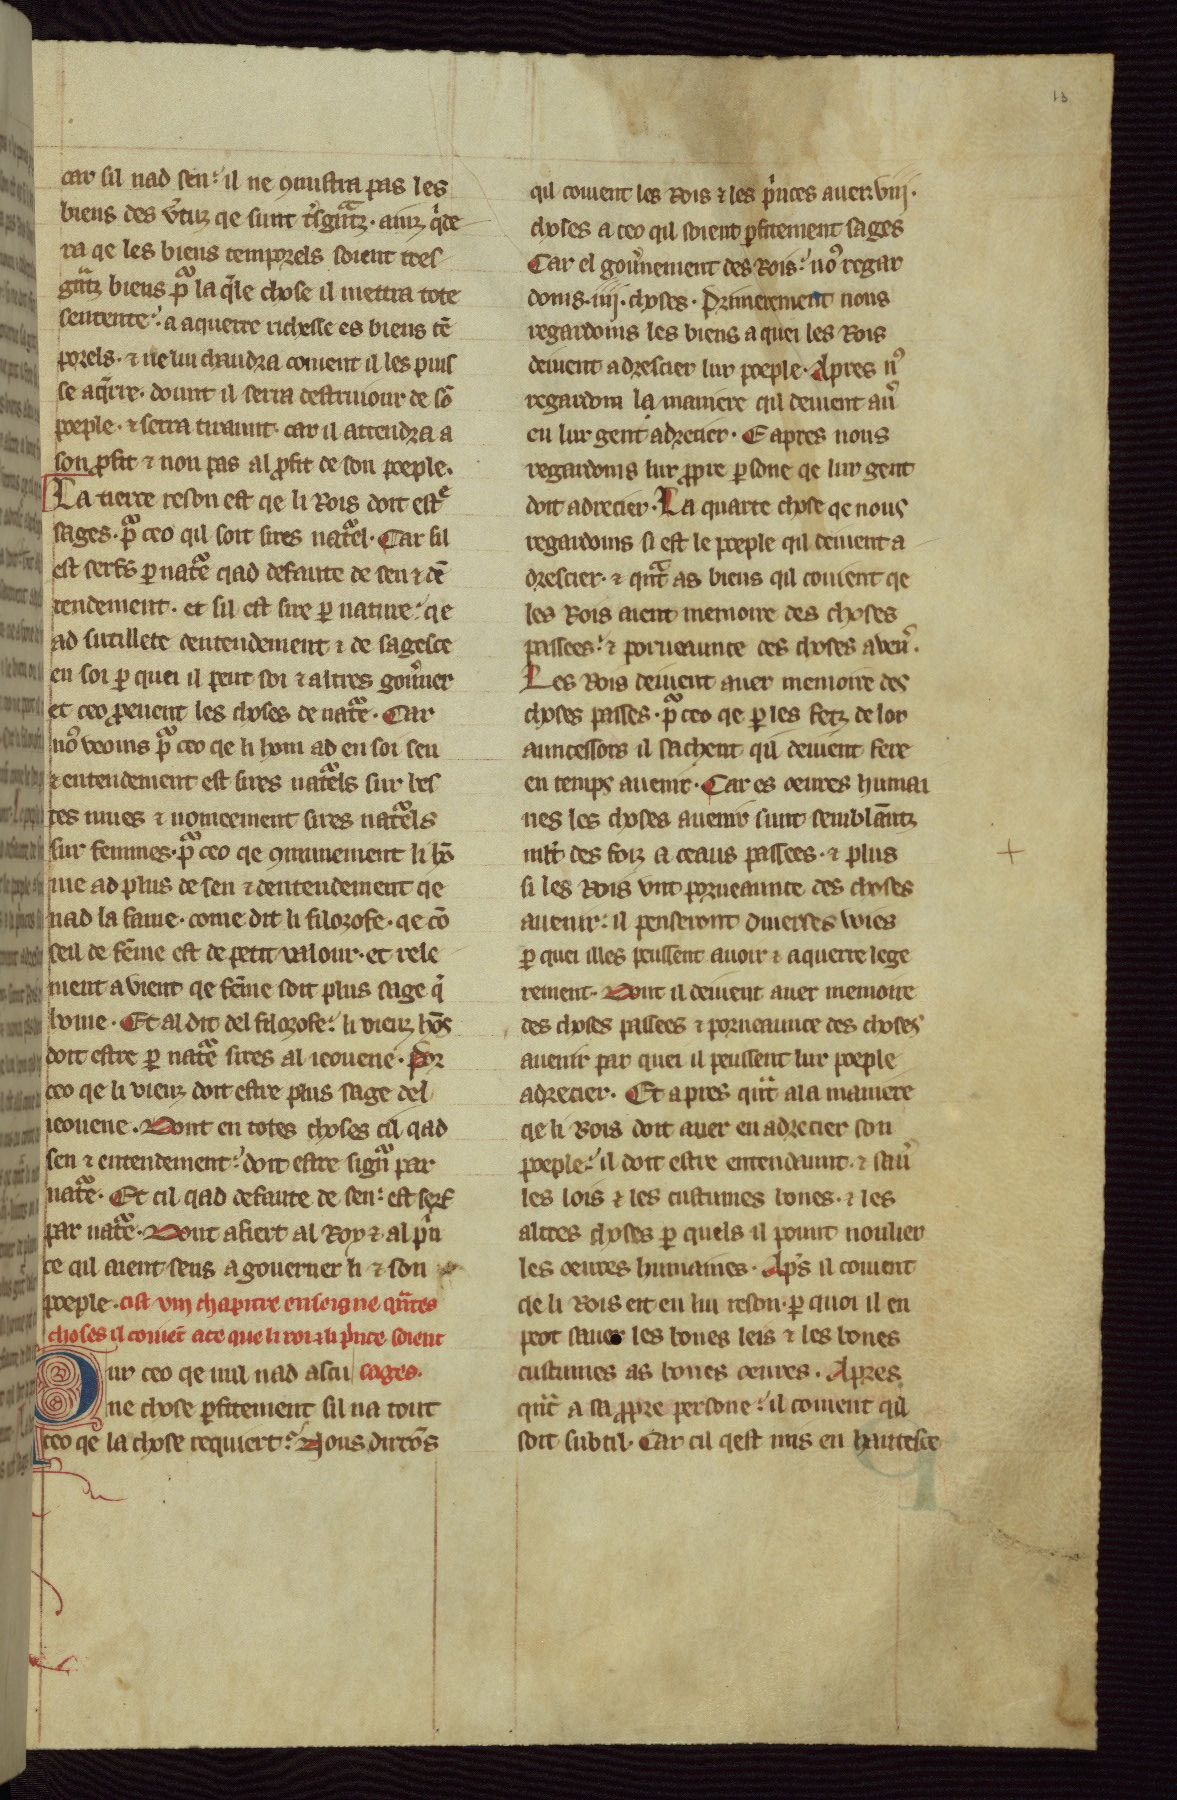 13
car sil nad sen: il ne 9nustra pas les
biens des v̾tuz qe sunt t̾sgntᷓz. ainz qͥde
ra qe les biens temporels soient tres
gnᷓtz biens pᷓ la qͣle chose il mettra tote
sentente: a aquerre richesse es biens tē
porels. ⁊ ne lui chaudra coment il les puis
se aq̃rre. dount il serra destruiour de sō
poeple. ⁊ serra tiraunt. car il attendra a
son ꝓfit ⁊ non pas al ꝓfit de son poeple.
La tierce reson est qe li Rois doit estͤ
sages. pᷓ ceo qil soit sires natᷓel. Car sil
est serfs ꝑ natᷓe qad defaute de sen ⁊ dē
tendement. et sil est sire ꝑ nature: qe
ad sutillete dentendement ⁊ de sagesce
en soi ꝑ quei il peut soi ⁊ altres gou̾ner
et ceo ꝓeuent les choses de natᷓe. Car
no᷒ veoms pᷓ ceo qe li hom ad en soi sen
⁊ entendement est sires natᷓels sur bes
tes mues ⁊ nomeement sires natᷓels
sur femmes. pᷓ ceo qe 9munement li hō
me ad plus de sen ⁊ dentendement qe
nad la fame. come dit li filozofe. qe cō
seil de fēme est de petit valour. et rele
ment avient qe fēme soit plus sage qͥ
home. Et al dit del filozofe: li vieuz hōs
doit estre ꝑ natᷓe sires al ieouene. Por
ceo qe li vieuz doit estre plus sage del
ieouene. Dont en totes choses cil qad
sen ⁊ entendement: doit estre signᷓ par
natᷓe. Et cil qad defaute de sen: est serf
par natᷓe. Dont afiert al Roy ⁊ al pͥn
ce qil aient sens a gouerner li ⁊ son
poeple. cist viij chapitre enseigne qntᷓes
choses il couiēt a ce que li roi ⁊ li pͥnce soient
Pur ceo qe nul nad ascu sages.
ne chose ꝑfitement sil na tout
ceo qe la chose requiert: Nous dirōs
qil couient les Rois ⁊ les pͥnces auer. viij.
choses a ceo qil soient ꝑfitement sages
Car el gou̾nement des Rois: no᷒ regar
doms. iiij. choses. Primerement nous
regardoms les biens a quei les Rois
deiuent adrescier lur poeple. Apres n᷒
regardom la maniere qil deiuent au̾
en lur gent adrecier. E apres nous
regardoms lur ꝓpre ꝑsone qe lur gent
doit adrecier. La quarte chose qe nous
regardoms si est le poeple qil deiuent a
drescier. ⁊ qntᷓ as biens qil couient qe
les Rois aient memoire des choses
passees: ⁊ porueaunce des choses aven̾.
Les Rois deiuent auer memoire des
choses passes. pᷓ ceo qe ꝑ les fetz de lor
auncessors il sachent qil deiuent fere
en temps auenir. Car es oeures humai
nes les choses auenir sunt semblāntz
mlt̾ des foiz a ceaus passees. ⁊ plus
si les Rois vnt porueaunce des choses
auenir: il penseront diuerses voies
ꝑ quei illes peussent auoir ⁊ aquerre lege
rement. Dont il deiuent auer memoire
des choses passees ⁊ porueaunce des choses
auenir par quei il peussent lur poeple
adrecier. Et apres qntᷓ a la maniere
qe li Rois doit auer en adrecier son
poeple: il doit estre entendaunt. ⁊ sau̾
les lois ⁊ les custumes bones. ⁊ les
altres choses ꝑ quels il pount noulier
les oeures humaines. Ap̾s il couient
qe li Rois eit en lui reson. ꝑ quoi il en
peot sauer les bones leis ⁊ les bones
custumes as bones oeures. Apres
qntᷓ a sa ꝓpre persone: il couient qil
soit subtil. Car cil qest mis en hautesce